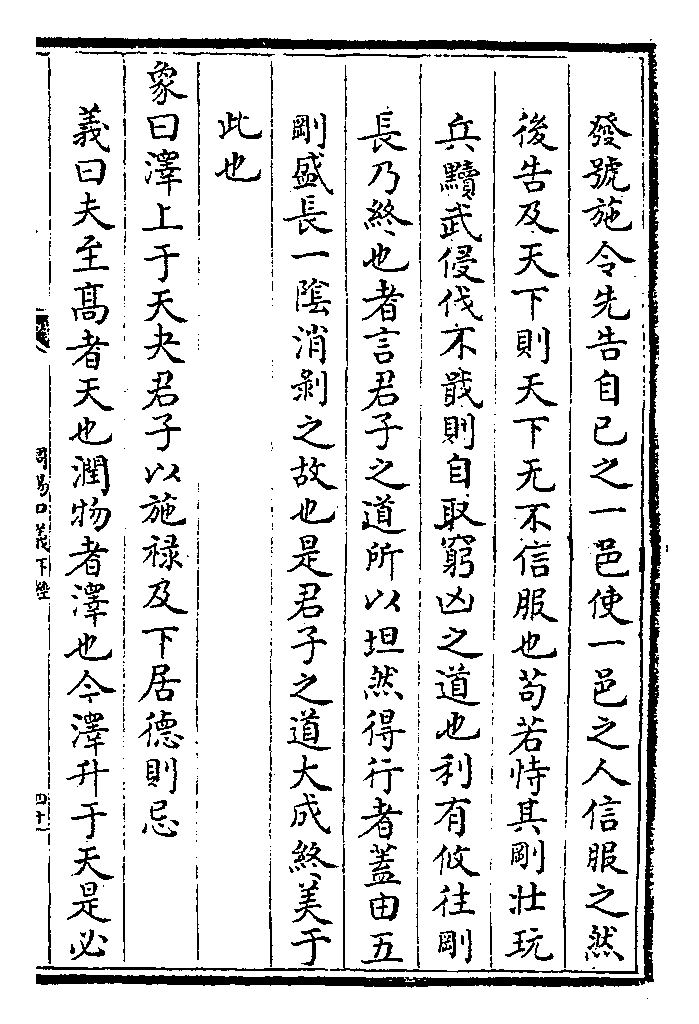 發號施令先告自已之一邑使一邑之人信服之然
後告及天下則天下无不信服也苟若恃其剛壯玩
兵黷武侵伐不戢則自取窮凶之道也利有攸往剛
長乃終也者言君子之道所以坦然得行者蓋由五
剛盛長一隂消剥之故也是君子之道大成終美于
此也
象曰澤上于天夬君子以施禄及下居德則忌
義曰夫至髙者天也潤物者澤也今澤升于天是必
周易口義下經